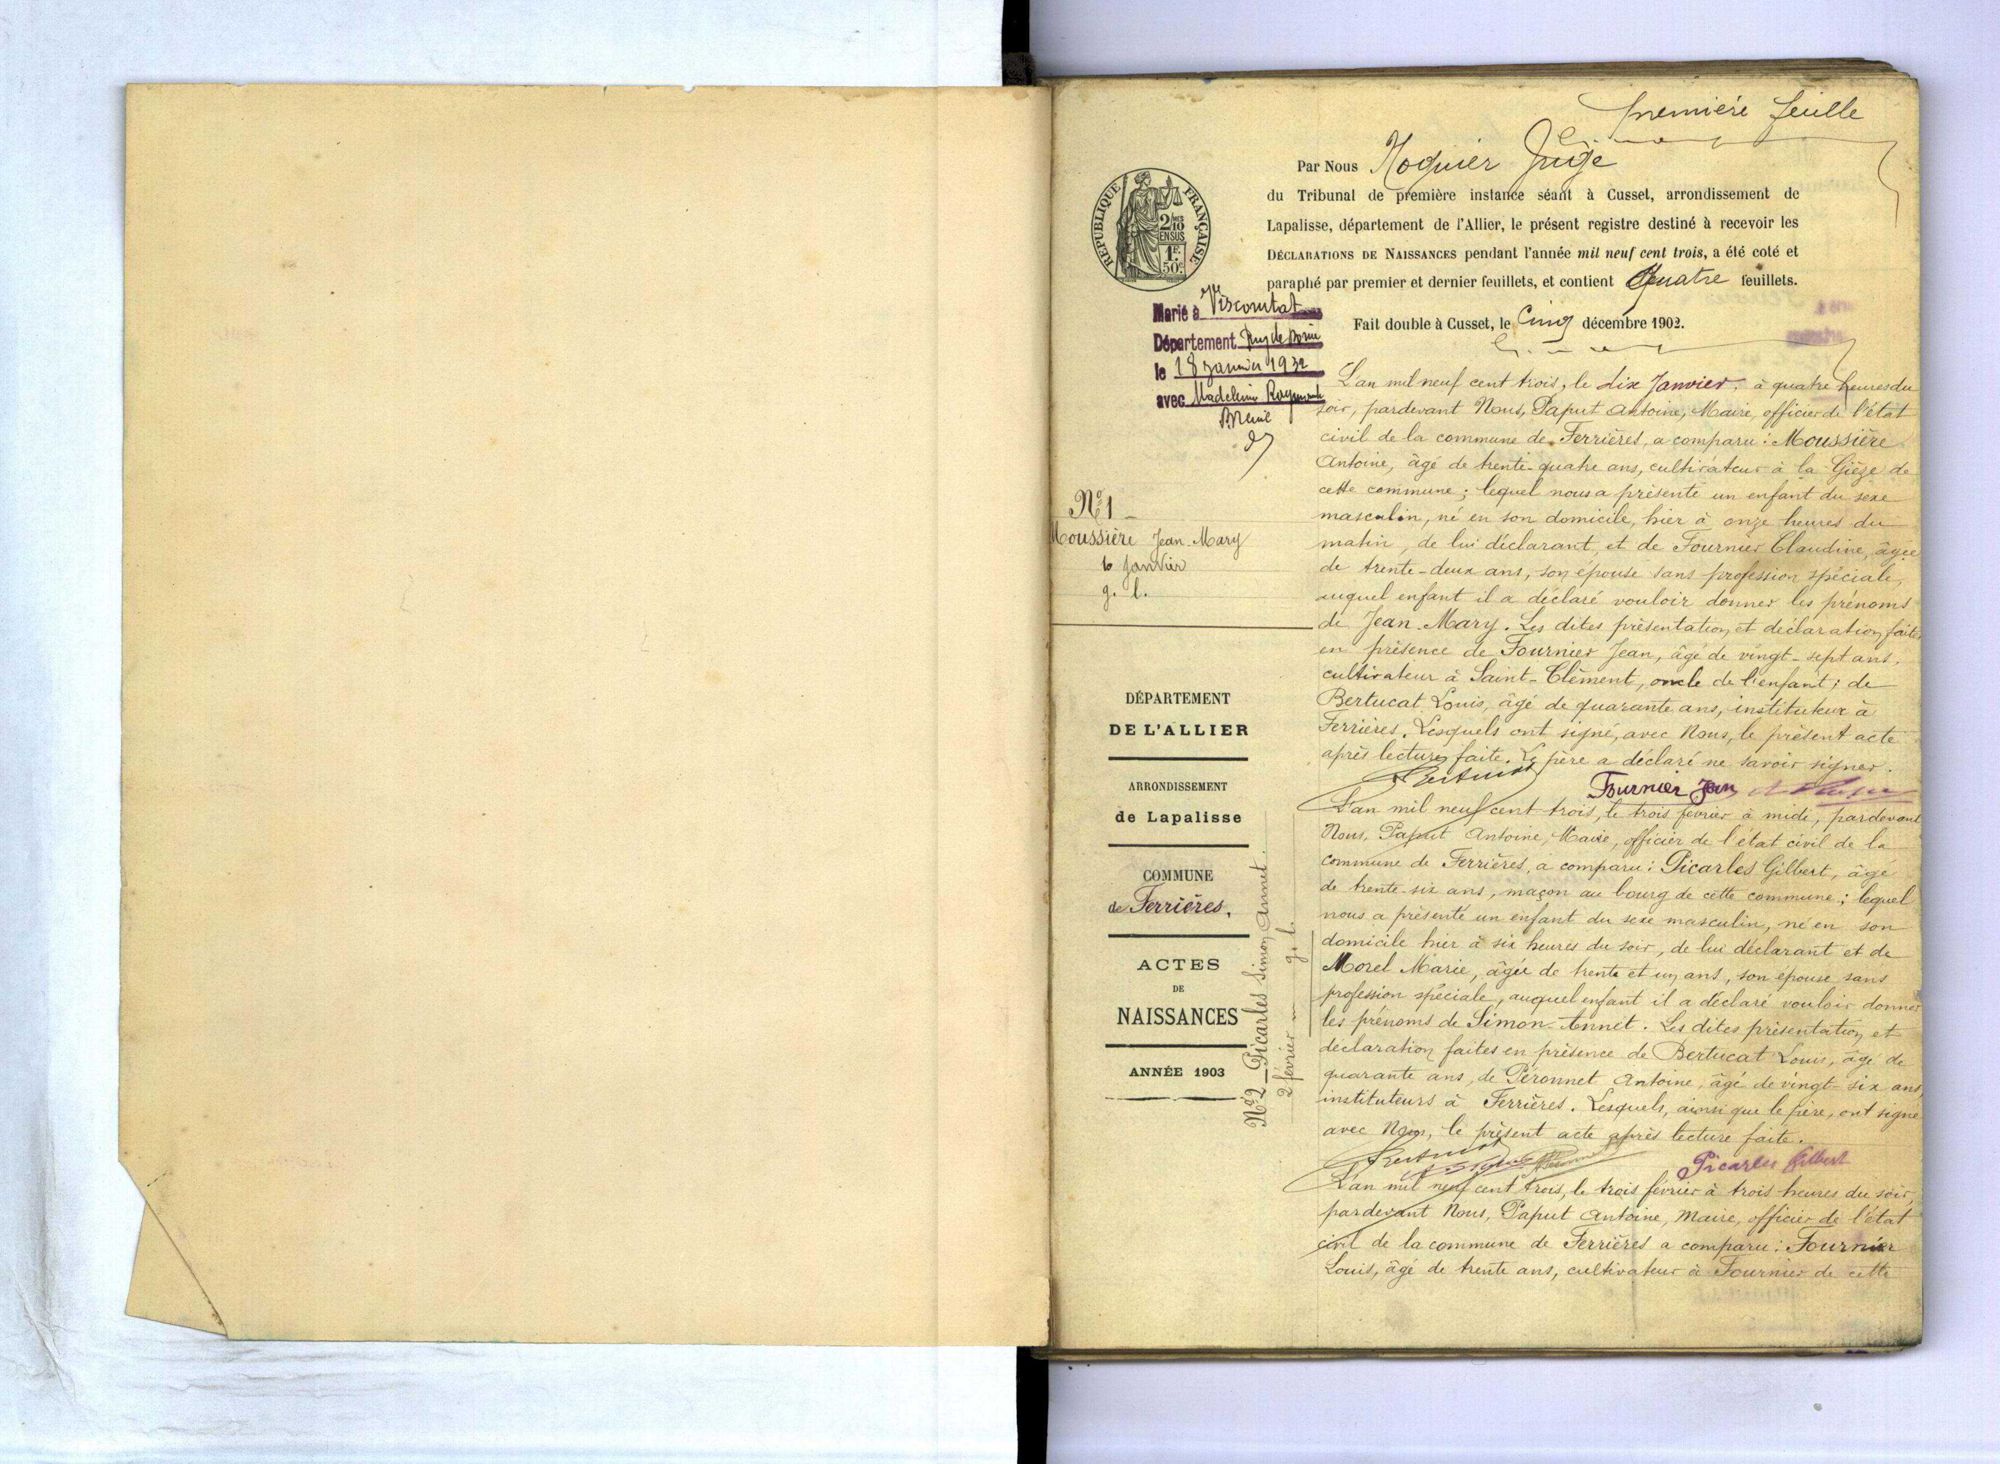 première feuille
Par Nous Noquier Juge
du Tribunal de première instance séant à Cusset, arrondissement de
Lapalisse, département de l'Allier, le présent registre destiné à recevoir les
DÉCLARATIONS DE NAISSANCES pendant l'année mil neuf cent trois, a été coté et
paraphé par premier et dernier feuillets, et contient Quatre feuillets.
Fait double à Cusset, le Cinq décembre 1902.
RÉPUBLIQUE FRANÇAISE
2/10 EN SUS
1 F. 50 c.
Marié à Viscomtat
Département Puy de Dôme
le 18 janvier 1932
avec Madeleine Raymonde
N° 1
Moussière Jean-Mary
janvier
g. l.
L'an mil neuf cent trois, le dix Janvier, à quatre heures du
soir, pardevant Nous, Paput Antoine, Maire, officier de l'état
civil de la commune de Ferrières, a comparu : Moussière
Antoine, âgé de trente-quatre ans, cultivateur à la Gièze de
cette commune ; lequel nous a présenté un enfant du sexe
masculin, né en son domicile, hier à onze heures du
matin, de lui déclarant, et de Fournier Claudine, âgée
de trente-deux ans, son épouse sans profession spéciale,
auquel enfant il a déclaré vouloir donner les prénoms
de Jean-Mary. Les dites présentation et déclaration faites
en présence de Fournier Jean, âgé de vingt-sept ans,
cultivateur à Saint-Clément, oncle de l'enfant ; de
Bertucat Louis, âgé de quarante ans, instituteur à
Ferrières. Lesquels ont signé, avec Nous, le présent acte
après lecture faite. Le père a déclaré ne savoir signer.
Bertucat Fournier Jean A. Paput
DÉPARTEMENT
DE L'ALLIER
ARRONDISSEMENT
de Lapalisse
COMMUNE
de Ferrières.
ACTES
DE
NAISSANCES
ANNÉE 1903
N° 2 _ Picarles Simon Annet.
2 février
g. l.
L'an mil neuf cent trois, le trois février à midi, pardevant
Nous, Paput Antoine, Maire, officier de l'état civil de la
commune de Ferrières, a comparu : Picarles Gilbert, âgé
de trente-six ans, maçon au bourg de cette commune ; lequel
nous a présenté un enfant du sexe masculin, né en son
domicile hier à six heures du soir, de lui déclarant et de
Morel Marie, âgée de trente et un ans, son épouse sans
profession spéciale, auquel enfant il a déclaré vouloir donner
les prénoms de Simon-Annet. Les dites présentation et
déclaration faites en présence de Bertucat Louis, âgé de
quarante ans, de Péronnet Antoine, âgé de vingt-six ans,
instituteurs à Ferrières. Lesquels, ainsi que le père, ont signé
avec Nous, le présent acte après lecture faite.
Bertucat A. Paput Péronnet Picarles Gilbert
L'an mil neuf cent trois, le trois février à trois heures du soir,
pardevant Nous, Paput Antoine, Maire, officier de l'état
civil de la commune de Ferrières a comparu : Fournier
Louis, âgé de trente ans, cultivateur à Fournier de cette